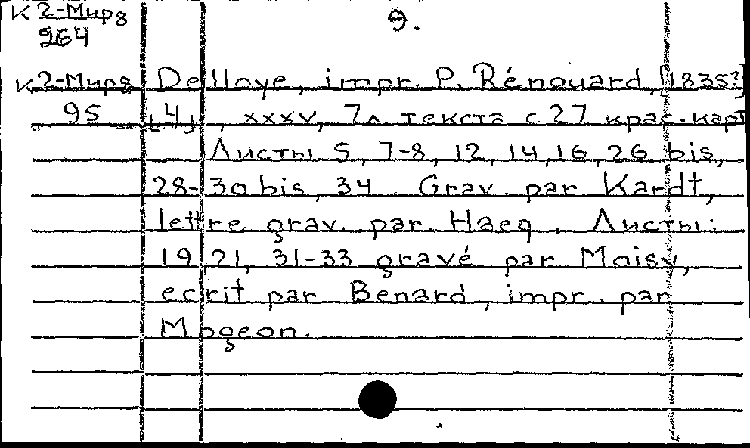 К 2-Мир8
264
9.
К 2-Мир8 Delloye, impr. P. Rénouard, [1835?]
95 [4], xxxv, 7 л. текста с 27 крас. карт
Листы 5, 7-8, 12, 14, 16, 26 bis,
28-30 bis, 34 Grav par Kardt,
lettre grav. par. Hacq. Листы:
19, 21, 31-33 gravé par Moisy,
ecrit par Benard, impr. par
Mogeon.